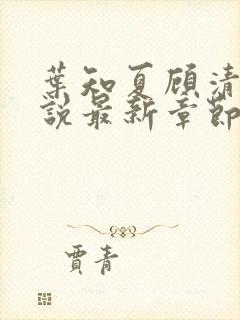 葉知夏顧清
說最新章節
賈青